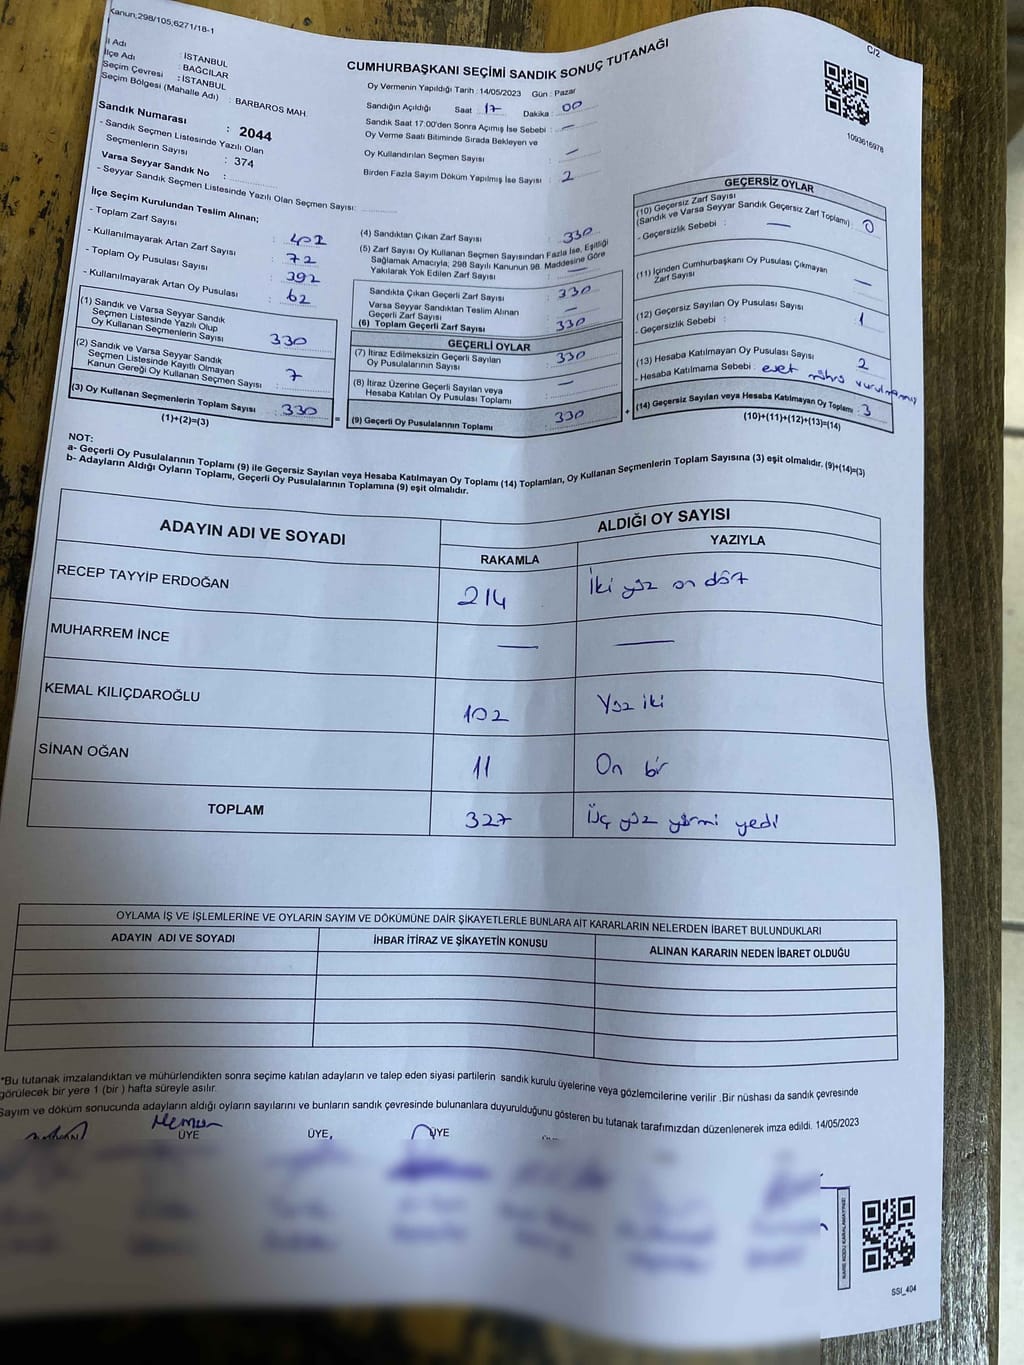 Kanun;298/105,6271/18-1
C/2
CUMHURBAŞKANI SEÇİMİ SANDIK SONUÇ TUTANAĞI
İl Adı : İSTANBUL
İlçe Adı : BAĞCILAR
Seçim Çevresi : İSTANBUL
Seçim Bölgesi (Mahalle Adı) : BARBAROS MAH.
Oy Vermenin Yapıldığı Tarih : 14/05/2023 Gün : Pazar
Sandığın Açıldığı Saat : 17 Dakika : 00
Sandık Saat 17:00'den Sonra Açımış İse Sebebi : —
Oy Verme Saati Bitiminde Sırada Bekleyen ve
Oy Kullandırılan Seçmen Sayısı : —
Birden Fazla Sayım Döküm Yapılmış İse Sayısı : 2
1093616978
Sandık Numarası : 2044
- Sandık Seçmen Listesinde Yazılı Olan
Seçmenlerin Sayısı : 374
Varsa Seyyar Sandık No :
- Seyyar Sandık Seçmen Listesinde Yazılı Olan Seçmen Sayısı:
İlçe Seçim Kurulundan Teslim Alınan;
- Toplam Zarf Sayısı : 402
- Kullanılmayarak Artan Zarf Sayısı : 72
- Toplam Oy Pusulası Sayısı : 392
- Kullanılmayarak Artan Oy Pusulası : 62
(1) Sandık ve Varsa Seyyar Sandık
Seçmen Listesinde Yazılı Olup
Oy Kullanan Seçmenlerin Sayısı 330
(2) Sandık ve Varsa Seyyar Sandık
Seçmen Listesinde Kayıtlı Olmayan
Kanun Gereği Oy Kullanan Seçmen Sayısı : 7
(3) Oy Kullanan Seçmenlerin Toplam Sayısı : 330
(1)+(2)=(3)
(4) Sandıktan Çıkan Zarf Sayısı : 330
(5) Zarf Sayısı Oy Kullanan Seçmen Sayısından Fazla İse, Eşitliği
Sağlamak Amacıyla, 298 Sayılı Kanunun 98. Maddesine Göre
Yakılarak Yok Edilen Zarf Sayısı : —
Sandıkta Çıkan Geçerli Zarf Sayısı : 330
Varsa Seyyar Sandıktan Teslim Alınan
Geçerli Zarf Sayısı : —
(6) Toplam Geçerli Zarf Sayısı : 330
GEÇERLİ OYLAR
(7) İtiraz Edilmeksizin Geçerli Sayılan
Oy Pusulalarının Sayısı : 330
(8) İtiraz Üzerine Geçerli Sayılan veya
Hesaba Katılan Oy Pusulası Toplamı : —
= (9) Geçerli Oy Pusulalarının Toplamı : 330
GEÇERSİZ OYLAR
(10) Geçersiz Zarf Sayısı
(Sandık ve Varsa Seyyar Sandık Geçersiz Zarf Toplamı) : 0
- Geçersizlik Sebebi : —
(11) İçinden Cumhurbaşkanı Oy Pusulası Çıkmayan
Zarf Sayısı : —
(12) Geçersiz Sayılan Oy Pusulası Sayısı : 1
- Geçersizlik Sebebi :
(13) Hesaba Katılmayan Oy Pusulası Sayısı : 2
- Hesaba Katılmama Sebebi : evet mührü vurulmamış
+ (14) Geçersiz Sayılan veya Hesaba Katılmayan Oy Toplamı : 3
(10)+(11)+(12)+(13)=(14)
NOT:
a- Geçerli Oy Pusulalarının Toplamı (9) ile Geçersiz Sayılan veya Hesaba Katılmayan Oy Toplamı (14) Toplamları, Oy Kullanan Seçmenlerin Toplam Sayısına (3) eşit olmalıdır. (9)+(14)=(3)
b- Adayların Aldığı Oyların Toplamı, Geçerli Oy Pusulalarının Toplamına (9) eşit olmalıdır.
ADAYIN ADI VE SOYADI ALDIĞI OY SAYISI
RAKAMLA YAZIYLA
RECEP TAYYİP ERDOĞAN 214 İki yüz on dört
MUHARREM İNCE — —
KEMAL KILIÇDAROĞLU 102 Yüz iki
SİNAN OĞAN 11 On bir
TOPLAM 327 Üç yüz yirmi yedi
OYLAMA İŞ VE İŞLEMLERİNE VE OYLARIN SAYIM VE DÖKÜMÜNE DAİR ŞİKAYETLERLE BUNLARA AİT KARARLARIN NELERDEN İBARET BULUNDUKLARI
ADAYIN ADI VE SOYADI İHBAR İTİRAZ VE ŞİKAYETİN KONUSU ALINAN KARARIN NEDEN İBARET OLDUĞU
*Bu tutanak imzalandıktan ve mühürlendikten sonra seçime katılan adayların ve talep eden siyasi partilerin sandık kurulu üyelerine veya gözlemcilerine verilir .Bir nüshası da sandık çevresinde
görülecek bir yere 1 (bir ) hafta süreyle asılır.
Sayım ve döküm sonucunda adayların aldığı oyların sayılarını ve bunların sandık çevresinde bulunanlara duyurulduğunu gösteren bu tutanak tarafımızdan düzenlenerek imza edildi. 14/05/2023
Memur
ÜYE ÜYE, ÜYE
KARE KODU KARALAMAYINIZ!
SSI_404